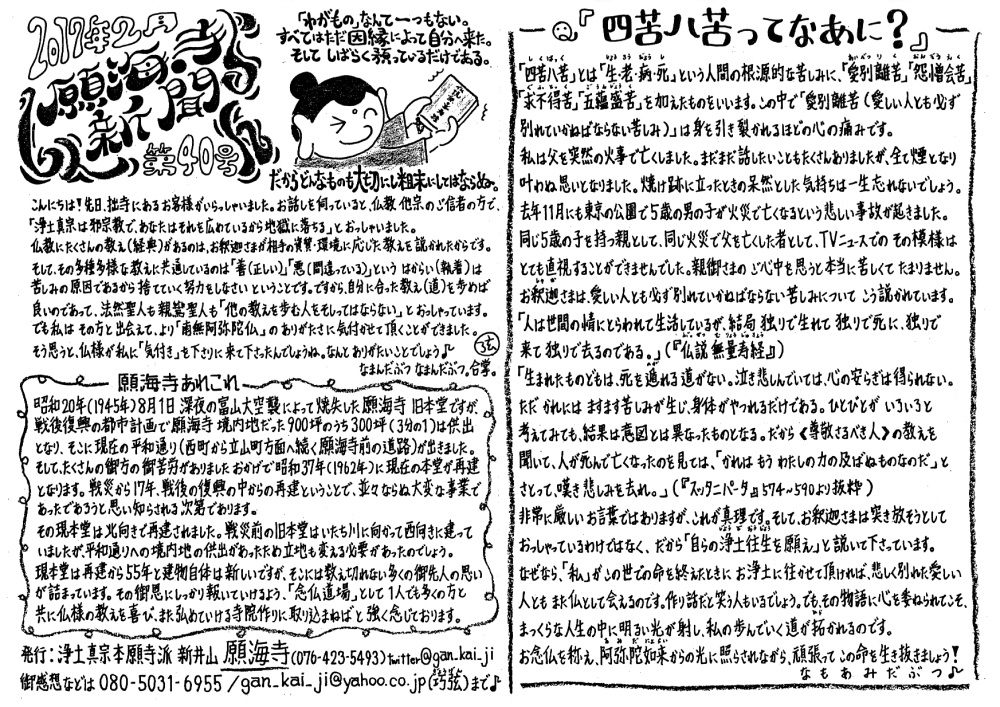 2017年2月
願海寺新聞
第40号
「わがもの」なんて一つもない。
すべてはただ因縁によって自分へ来た。
そして しばらく預っているだけである。
だからどんなものも大切にし粗末にしてはならぬ。
こんにちは!先日、拙寺にあるお客様がいらっしゃいました。お話しを伺っていると、仏教 他宗のご信者の方で、
「浄土真宗は邪宗教で、あなたはそれを広めているから地獄に落ちる」とおっしゃいました。
仏教にたくさんの教え(経典)があるのは、お釈迦さまが相手の資質・環境に応じた教えを説かれたからです。
そして、その多種多様な教えに共通しているのは「善(正しい)」「悪(間違っている)」という はからい(執着)は
苦しみの原因であるから 捨てていく努力をしなさい ということです。ですから、自分に合った教え(道)を歩めば
良いのであって、法然聖人も親鸞聖人も「他の教えを歩む人をそしってはならない」とおっしゃっています。
でも私は その方と出会えて、より「南無阿弥陀仏」の ありがたさに気付かせて頂くことができました。
そう思うと、仏様が私に「気付き」を下さりに 来て下さったんでしょうね。なんと ありがたいことでしょう♪
なまんだぶつ なまんだぶつ。合掌。
願海寺あれこれ
昭和20年(1945年)8月1日 深夜の富山大空襲によって焼失した 願海寺 旧本堂ですが、
戦後復興の都市計画で願海寺 境内地だった900坪のうち300坪(3分の1)は供出
となり、そこに現在の 平和通り(西町から立山町方面へ続く願海寺前の道路)が出きました。
そして、たくさんの御方の御苦労がありました おかげで昭和37年(1962年)に現在の本堂が再建
となります。戦災から17年、戦後の復興の中からの再建ということで、並々ならぬ大変な事業で
あったであろうと思い知られる次第であります。
その現本堂は北向きで再建されました。戦災前の旧本堂はいたち川に向かって西向きに建って
いましたが、平和通りへの境内地の供出があったため立地も変える必要があったのでしょう。
現本堂は再建から55年と建物自体は新しいですが、そこには数え切れない多くの御先人の思い
が詰まっています。その御恩にしっかり報いていけるよう、「念仏道場」として 1人でも多くの方と
共に仏様の教えを喜び、また弘めていける寺院作りに取り込まねばと 強く感じております。
発行:浄土真宗本願寺派 新井山 願海寺(076-423-5493)twitter@gan_kai_ji
御感想などは 080-5031-6955/gan_kai_ji@yahoo.co.jp(巧弦)まで♪
『四苦八苦ってなあに?』
「四苦八苦」とは「生・老・病・死」という人間の根源的な苦しみに、「愛別離苦」「怨憎会苦」
「求不得苦」「五蘊盛苦」を加えたものをいいます。この中で「愛別離苦(愛しい人とも必ず
別れていかねばならない苦しみ)」は身を引き裂かれるほどの心の痛みです。
私は父を突然の火事で亡くしました。まだまだ話したいこともたくさんありましたが、全て煙となり
叶わぬ思いとなりました。焼け跡に立ったときの呆然とした 気持ちは一生忘れないでしょう。
去年11月にも東京の公園で5歳の男の子が火災で亡くなるという悲しい事故が起きました。
同じ5歳の子を持つ親として、同じ火災で父を亡くした者として、TVニュースでの その模様は
とても直視することができませんでした。親御さまの ご心中を思うと本当に苦しくて たまりません。
お釈迦さまは、愛しい人とも必ず別れていかねばならない苦しみについて こう説かれています。
「人は世間の情にとらわれて生活しているが、結局 独りで生れて 独りで死に、独りで
来て 独りで去るのである。」(『仏説 無量寿経』)
「生まれたものどもは、死を遁れる道がない。泣き悲しんでいては、心の安らぎは得られない。
ただ かれには ますます苦しみが生じ、身体がやつれるだけである。ひとびとが いろいろと
考えてみても、結果は意図とは異なったものとなる。だから《尊敬さるべき人》の教えを
聞いて、人が死んで亡くなったのを見ては、「かれは もう わたしの力の及ばぬものなのだ」と
さとって、嘆き悲しみを去れ。」(『スッタニパータ』574~590より抜粋)
非常に厳しい お言葉ではありますが、これが真理です。そして、お釈迦さまは突き放そうとして
おっしゃっているわけではなく、だから「自らの浄土往生を願え」と説いて下さっています。
なぜなら、「私」が この世での命を終えたときに お浄土に往かせて頂ければ、悲しく別れた愛しい
人とも また仏として会えるのです。作り話だと笑う人もいるでしょう。でも、その物語に心を委ねられてこそ、
まっくらな人生の中に 明るい光が射し、私の歩んでいく道が 拓かれるのです。
お念仏を称え、阿弥陀如来からの光に照らされながら、頑張って この命を生き抜きましょう!
なもあみだぶつ♪